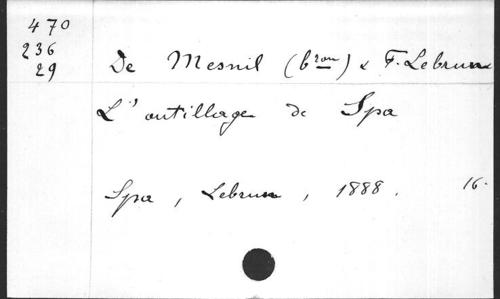 470
236
29
De Mesnil (bron) & F. Lebrun
L'outillage de Spa
Spa, Lebrun, 1888. 16.